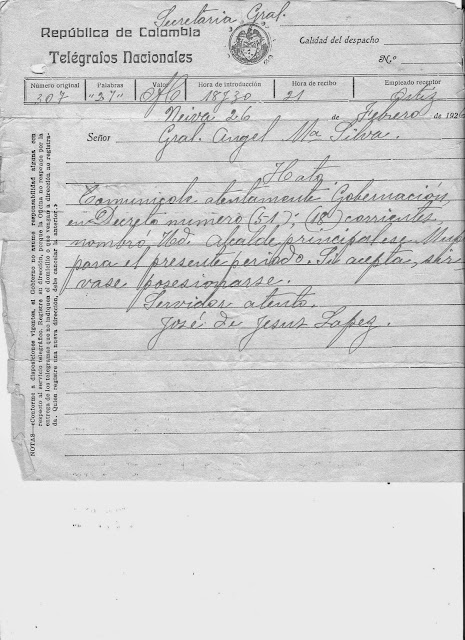 Secretaria Gral.
República de Colombia
Telégrafos Nacionales
Calidad del despacho
N.º
Número original
Palabras
Valor
Hora de introducción
Hora de recibo
Empleado receptor
207
"37"
18730
21
Ortiz
Neiva 26 de Febrero de 192
Señor Gral. Angel Mª Silva.
Hato
Comunícole atentamente Gobernación,
en Decreto numero (51); (18) corrientes,
nombró Ud. Alcalde principal ese Mup
para el presente periodo. Si acepta, sir
vase posesionarse.
Servidor atento.
José de Jesus Lopez.
NOTAS.—(Conforme a disposiciones vigentes, el Gobierno no asume responsabilidad alguna con
respecto al servicio telegráfico. Registre su dirección, porque la Oficina no responde por la
entrega de los telegramas que no indiquen el domicilio o que vengan a dirección no registra-
da. Quien registre una nueva dirección, debe cancelar la anterior.)